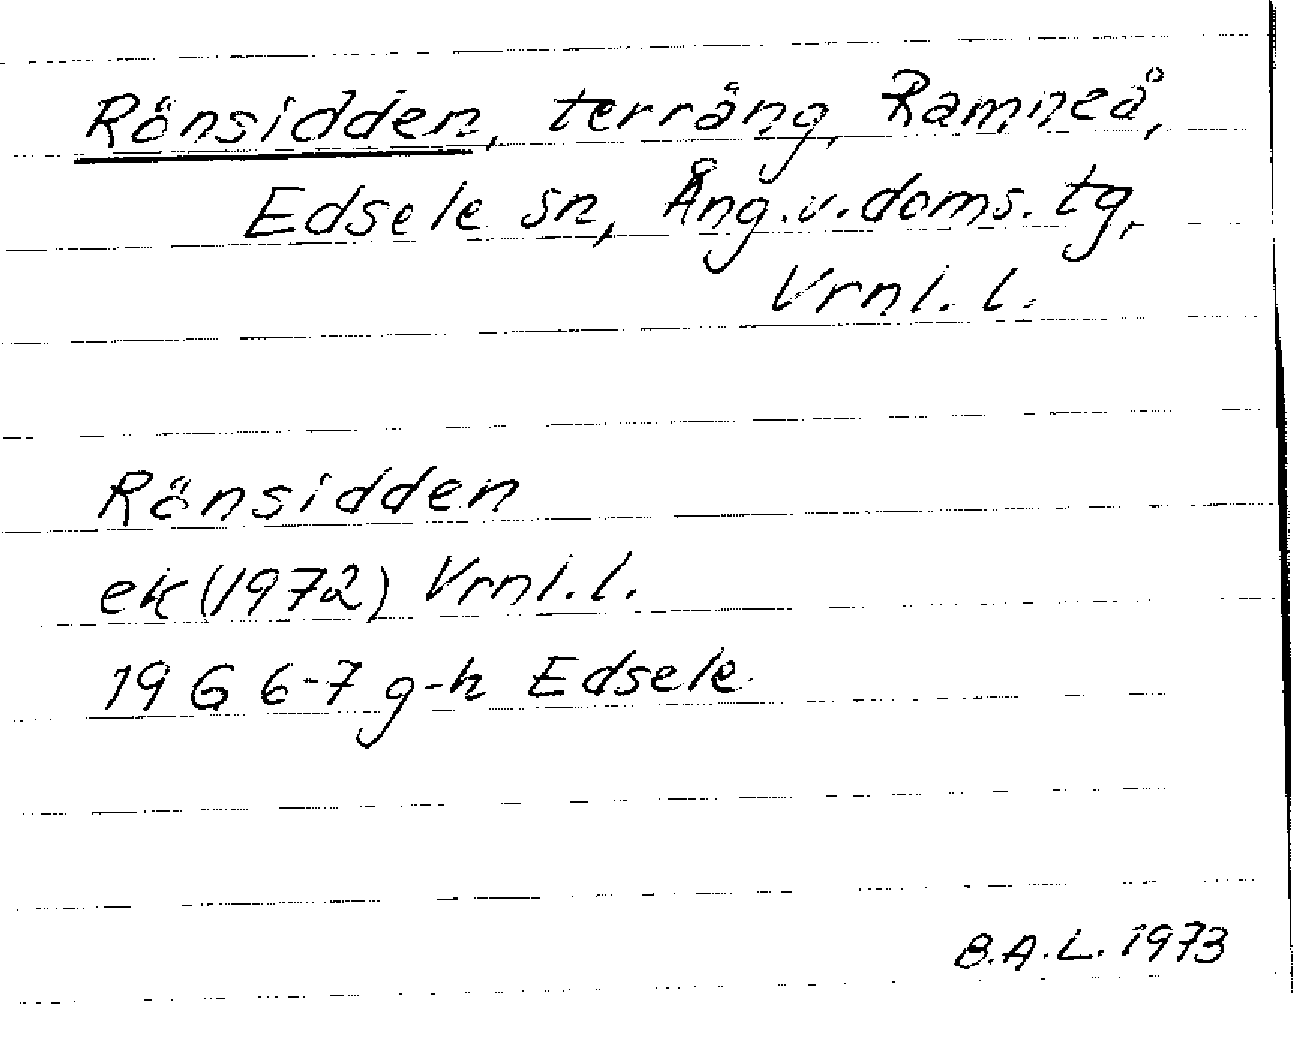 Rönsidden, terräng, Ramneå,
Edsele sn, Ång.v.doms.tg,
Vrnl. l.
Rönsidden
ek (1972) Vrnl. l.
19 G 6-7 g-h Edsele
B.A.L. 1973